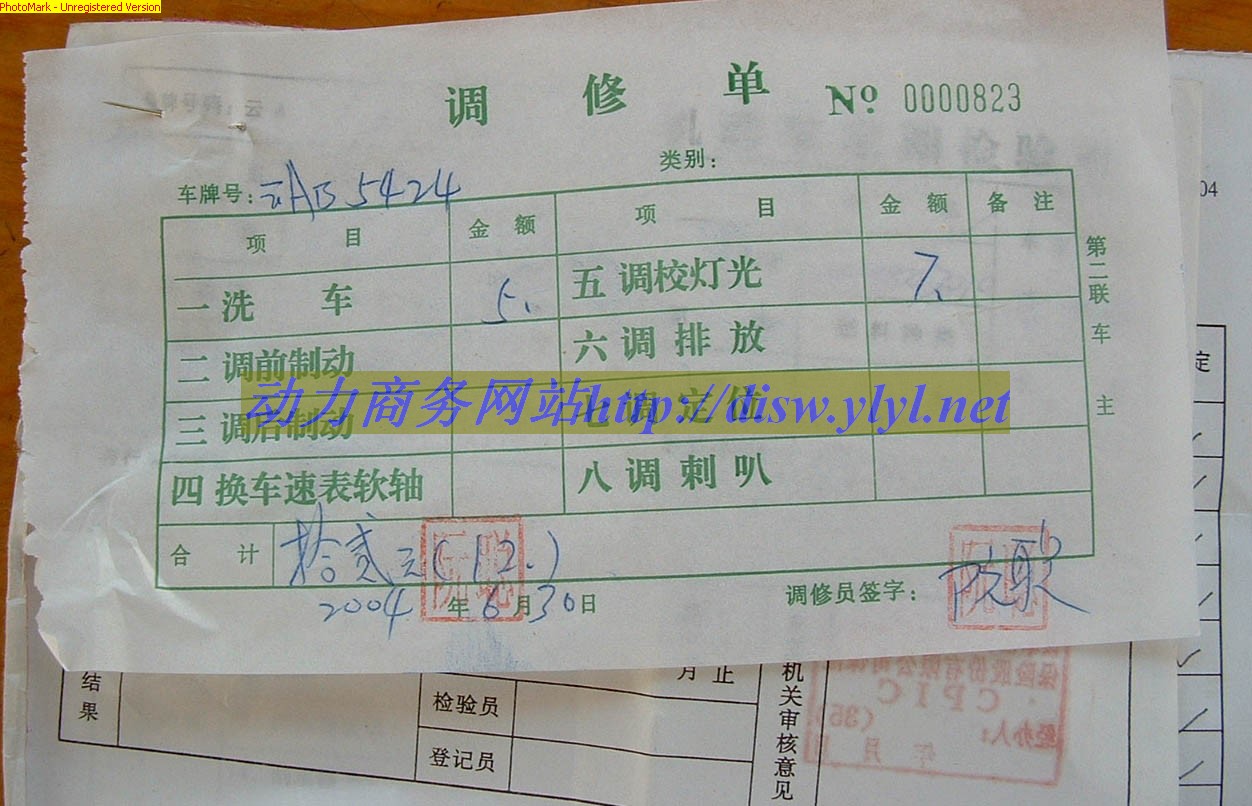 PhotoMark - Unregistered Version
调 修 单 Nº 0000823
车牌号：云AB5424 类别：
项 目 金 额 项 目 金 额 备 注
一 洗 车 5. 五 调校灯光 7.
二 调前制动 六 调 排 放
三 调后制动 七 调 定 位
四 换车速表软轴 八 调 刺 叭
动力商务网站http://disw.ylyl.net
合 计 拾贰元(12.)
2004年6月30日 调修员签字：
第二联 车主
04
定
结果
检验员
登记员
月 止
机关审核意见
保险股份有限公司
CPIC
经办人：
年 月 日